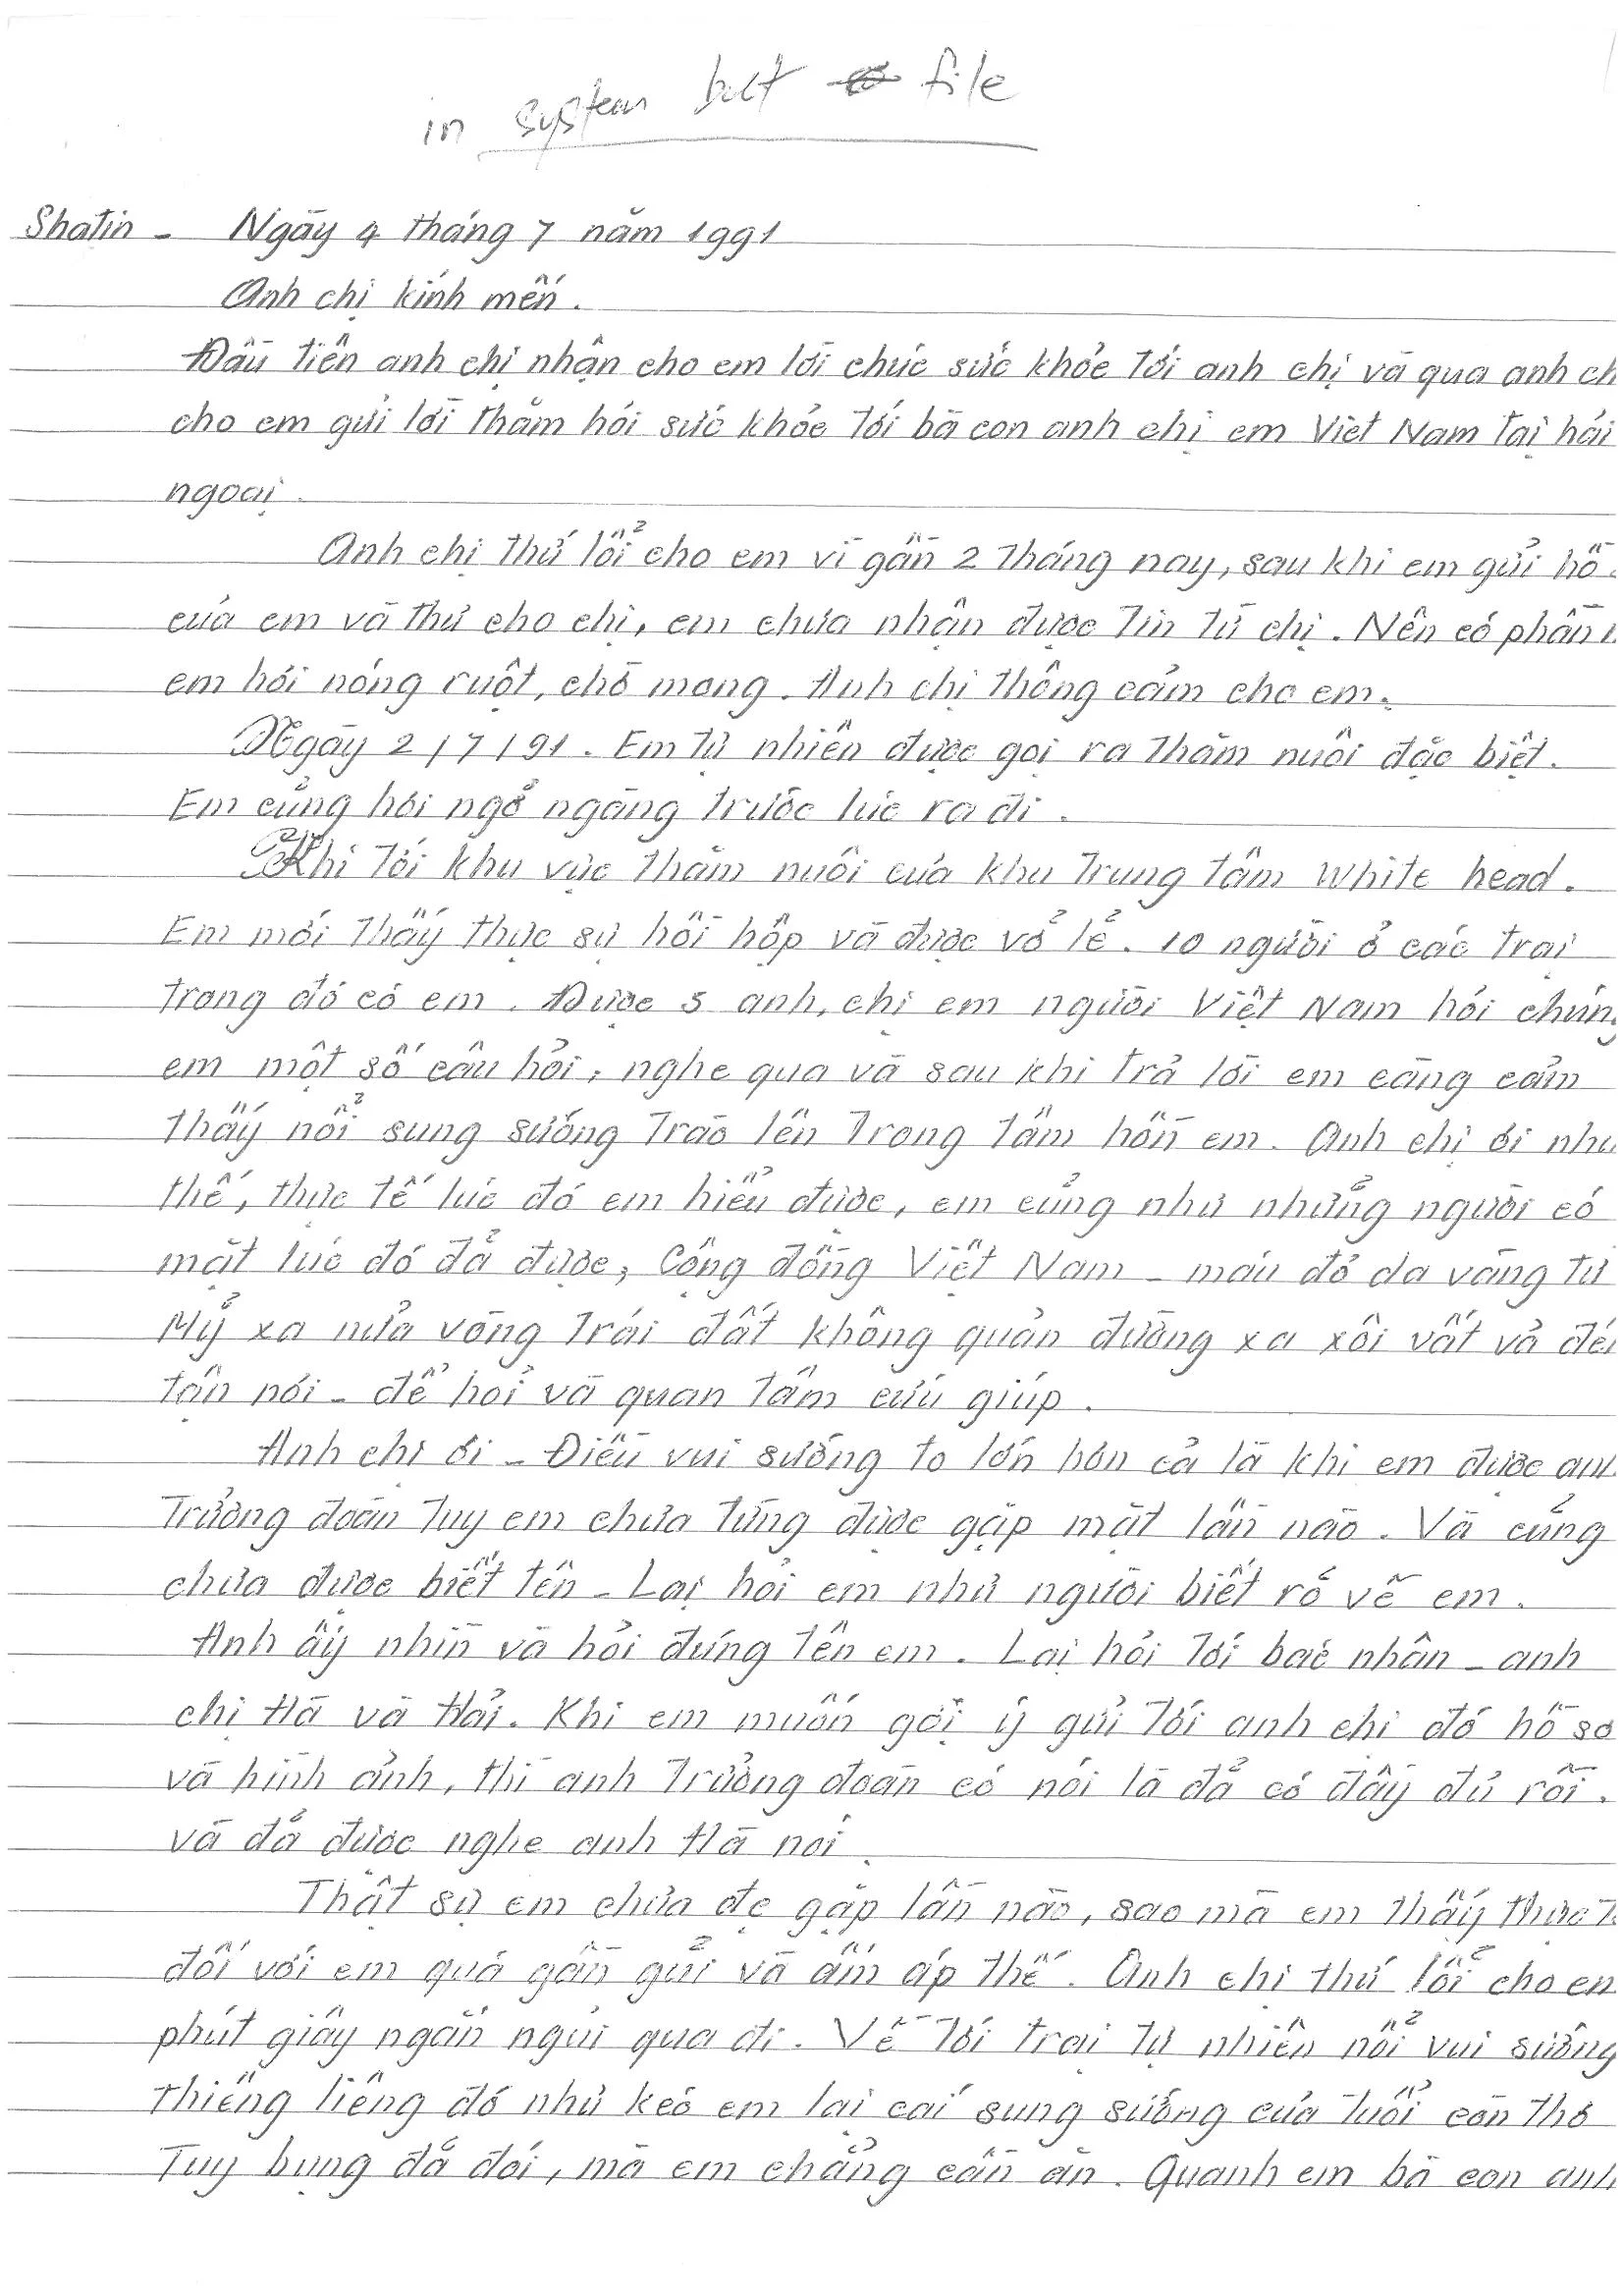 in system but file
Shatin - Ngày 4 tháng 7 năm 1991
Anh chị kính mến.
Đầu tiên anh chị nhận cho em lời chúc sức khỏe tới anh chị và qua anh ch
cho em gửi lời thăm hỏi sức khỏe tới bà con anh chị em Việt Nam tại hải
ngoại.
Anh chị thứ lổi cho em vì gần 2 tháng nay, sau khi em gửi hồ
của em và thư cho chị, em chưa nhận được tin từ chị. Nên có phần
em hơi nóng ruột, chờ mong. Anh chị thông cảm cho em.
Ngày 2/7/91. Em tự nhiên được gọi ra thăm nuôi đặc biệt.
Em củng hơi ngở ngàng trước lúc ra đi.
Khi tới khu vực thăm nuôi của khu trung tâm White head.
Em mới thấy thực sự hồi hộp và được vở lẻ. 10 người ở các trại
trong đó có em. Được 5 anh, chị em người Việt Nam hỏi chún
em một số câu hỏi, nghe qua và sau khi trả lời em càng cảm
thấy nổi sung sướng trào lên trong tâm hồn em. Anh chị ơi như
thế, thực tế lúc đó em hiểu được, em củng như nhửng người có
mặt lúc đó đả được, Cộng đồng Việt Nam - máu đỏ da vàng từ
Mỷ xa nửa vòng trái đất không quản đường xa xôi vất vả đế
tận nơi - để hỏi và quan tâm cứu giúp.
Anh chị ơi - Điều vui sướng to lớn hơn cả là khi em được anh
trưởng đoàn tuy em chưa từng được gặp mặt lần nào. Và củng
chưa được biết tên - Lại hỏi em như người biết rỏ về em.
Anh ấy nhìn và hỏi đúng tên em. Lại hỏi tới bác nhân - anh
chị Hà và Hải. Khi em muốn gợi ý gửi tới anh chị đó hồ sơ
và hình ảnh, thì anh trưởng đoàn có nói là đả có đầy đủ rồi.
và đả được nghe anh Hà nói
Thật sự em chưa đc gặp lần nào, sao mà em thấy thực t
đối với em quá gần gủi và ấm áp thế. Anh chị thứ lổi cho em
phút giây ngắn ngủi qua đi. Về tới trại tự nhiên nổi vui sướng
thiêng liêng đó như kéo em lại cái sung sướng của tuổi còn thơ
Tuy bụng đả đói, mà em chẳng cần ăn. Quanh em bà con anh